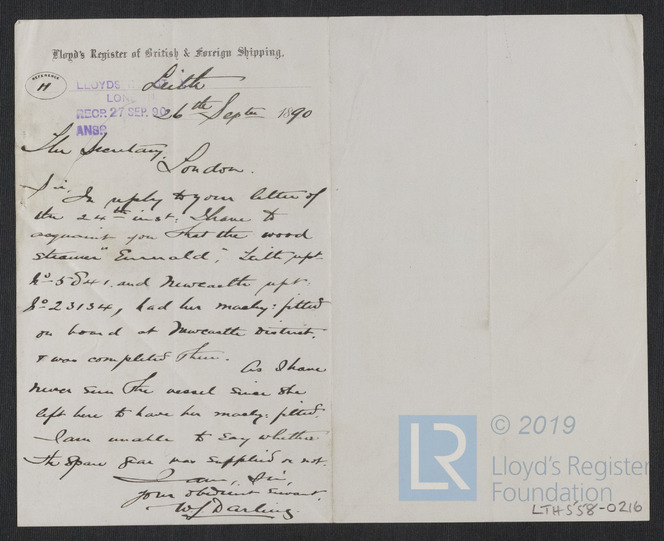 Lloyd's Register of British & Foreign Shipping,
REFERENCE
H
Leith
LLOYDS
LON
26th Septr 1890
RECD. 27 SEP. 90
ANSD.
The Secretary,
London.
Sir,
In reply to your letter of
the 24th inst: I have to
acquaint you that the wood
steamer "Emerald," Leith rept
No 5841, and Newcastle rept:
No 23134, had her machy: fitted
on board at Newcastle District,
& was completed there. As I have
never seen the vessel since she
left here to have her machy: fitted,
I am unable to say whether
the spare gear was supplied or not.
I am, Sir,
your obedient servant
WJ Darling.
LR © 2019
Lloyd's Register
Foundation
LTHS58-0216